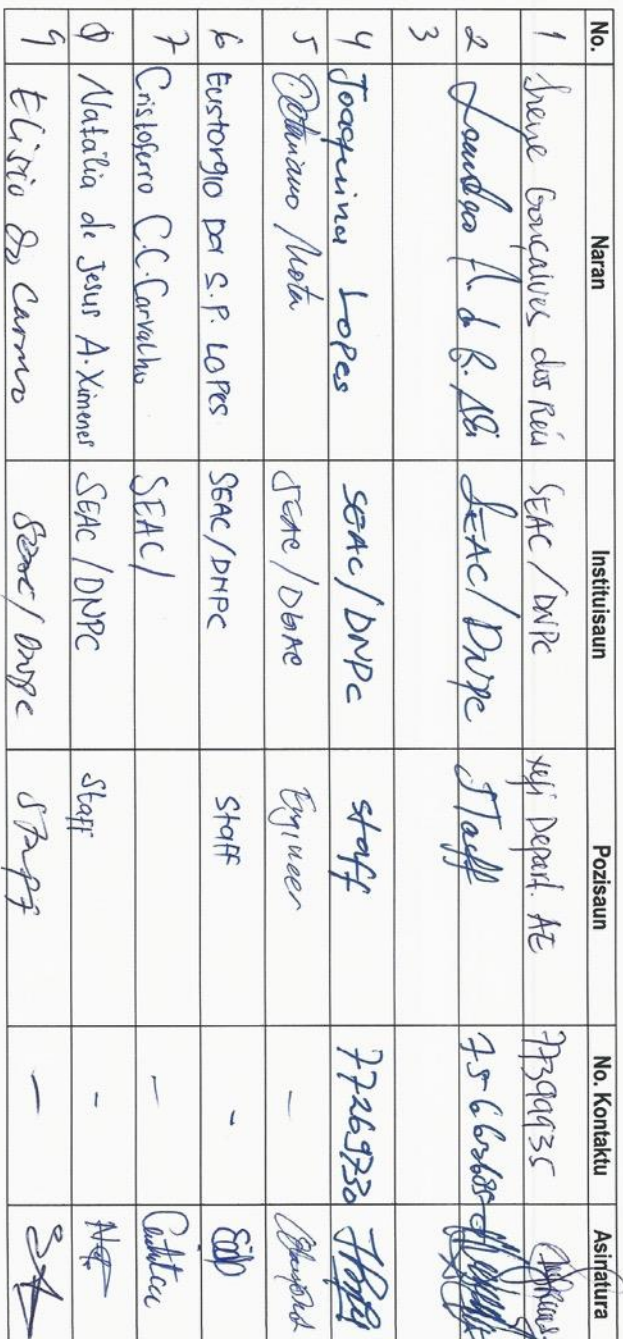 No. Naran Instituisaun Pozisaun No. Kontaktu Asinatura
1 Irene Gonçalves dos Reis SEAC/DNPC xefi Depart. AE
2 SEAC/DNPC Staff
3
4 Joaquina Lopes SEAC/DNPC staff 77269730
5 Mota SEAC/DGAC Engineer -
6 Eustorgio Da S.P. LOPES SEAC/DNPC Staff -
7 Cristoferro C.C. Carvalho SEAC/ -
8 Natália de Jesus A. Ximenes SEAC/DNPC Staff -
9 Elisio Do Carmo SEAC/DNPC Staff -